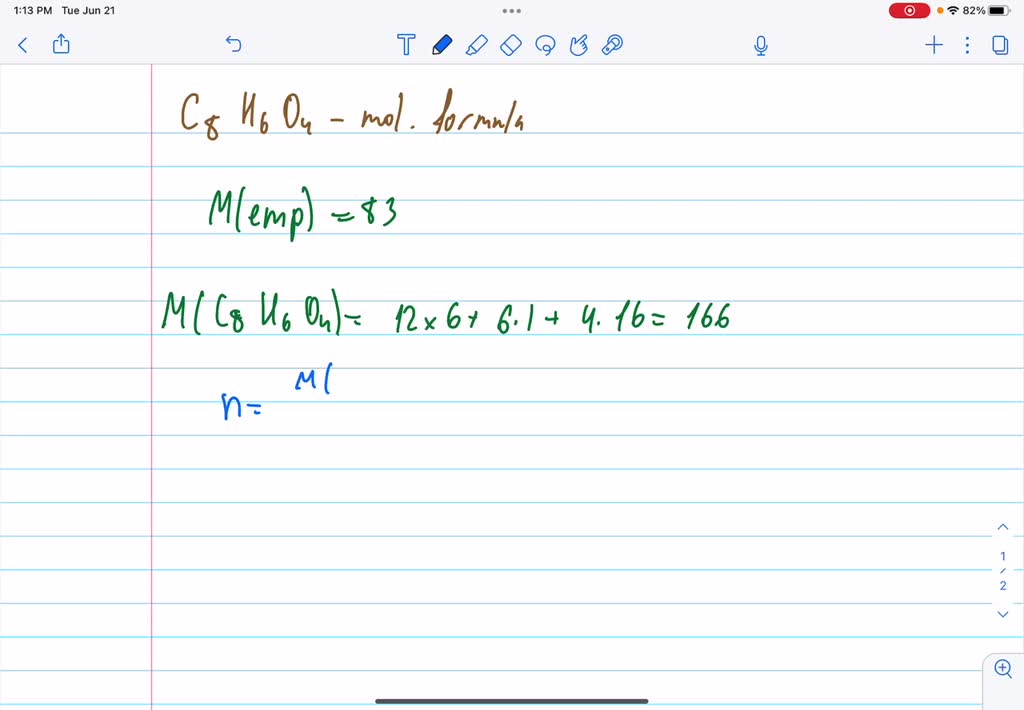 1:13 PM Tue Jun 21
82%
T
C₈ H₆ O₄ - mol. formula
M(emp) = 83
M( C₈ H₆ O₄) = 12 × 6 + 6 · 1 + 4 · 16 = 166
M(
n =
1
/
2